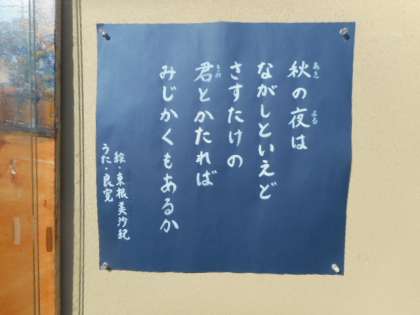 秋の夜は
ながしといえど
さすたけの
君とかたれば
みじかくもあるか
絵・東根美沙紀
うた・良寛